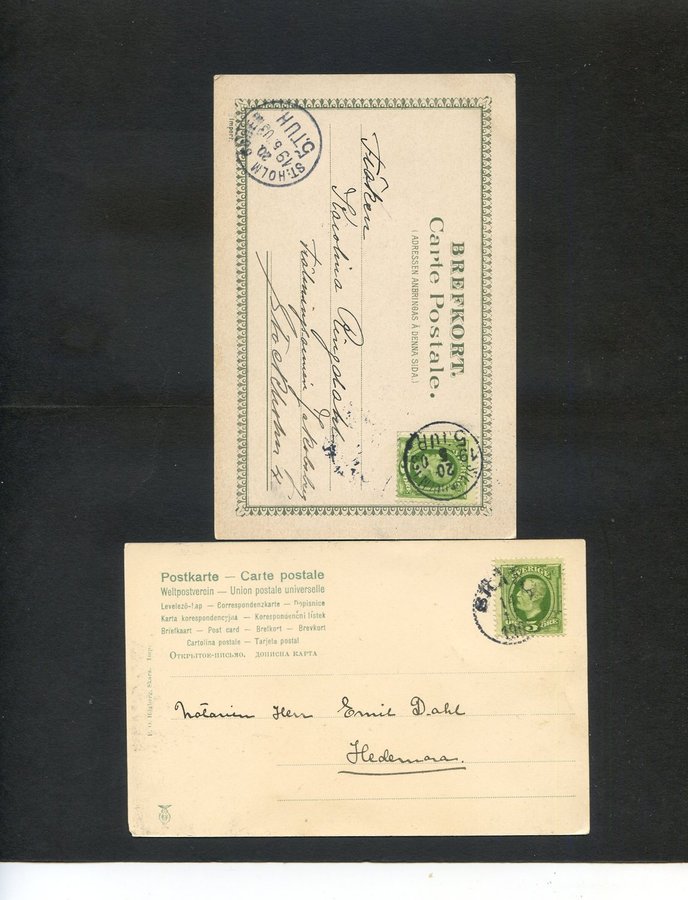 BREFKORT.
Carte Postale.
(ADRESSEN ANBRINGAS Å DENNA SIDA.)
Fröken
Karolina Ringdahl
Stockholm
Import.
ST:HOLM
20
19 5 03
5.TUR
5 TUR
Postkarte – Carte postale
Weltpostverein – Union postale universelle
Levelező-lap – Correspondenzkarte – Dopisnice
Karta korespondencyjna – Korespondenční lístek
Briefkaart – Post card – Brefkort – Brevkort
Cartolina postale – Tarjeta postal
ОТКРЫТОЕ-ПИСЬМО. ДОПИСНА КАРТА
SVERIGE
5 ÖRE
Notarien Herr Emil Dahl
Hedemora.
Skara. Imp.